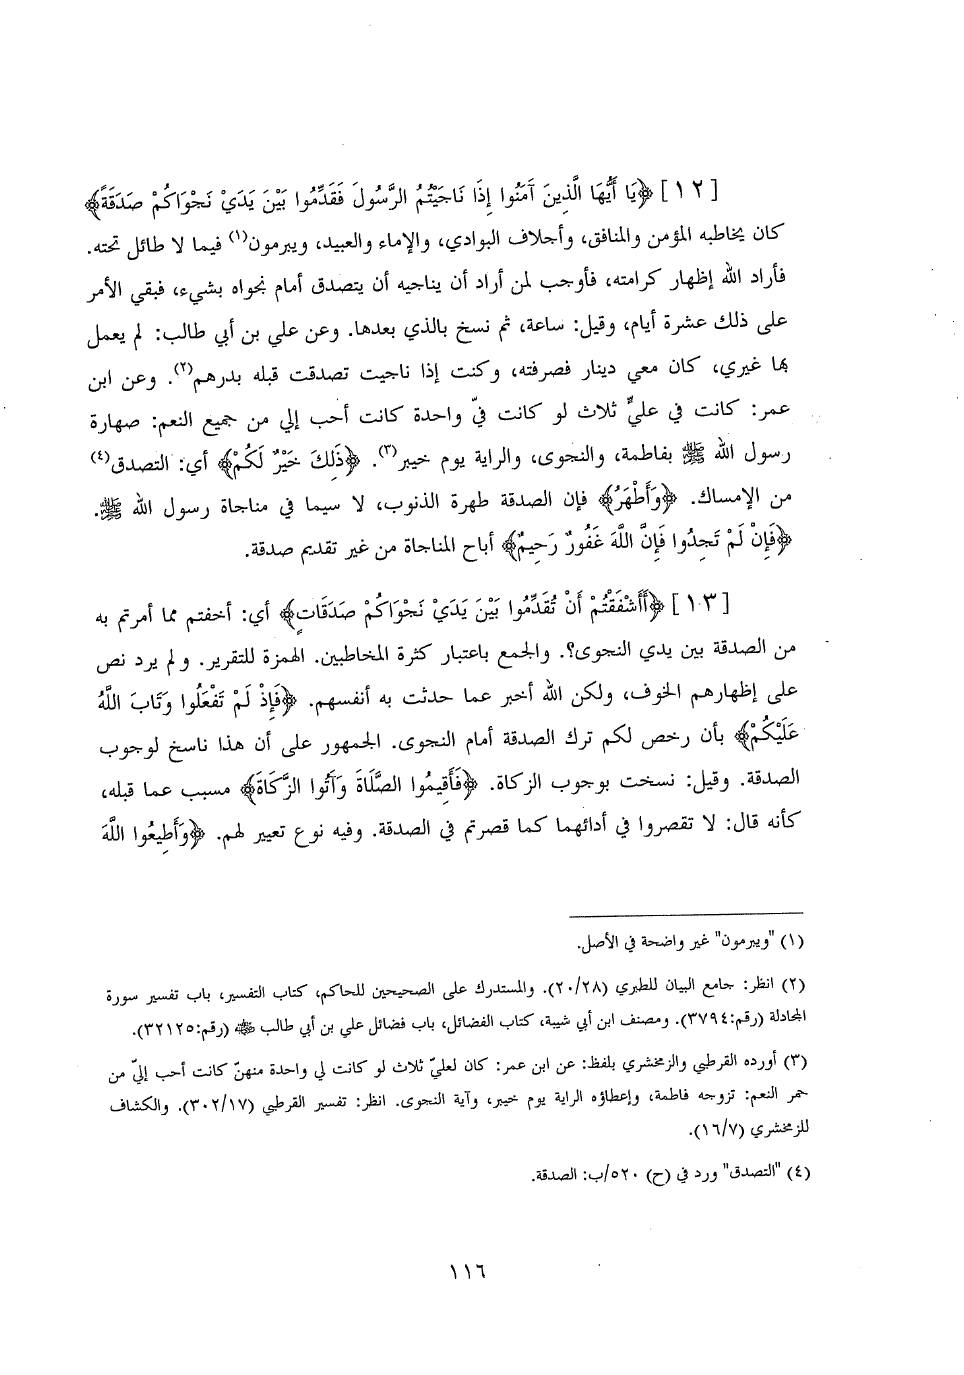 [١٢] ﴿يَا أَيُّهَا الَّذِينَ آمَنُوا إِذَا نَاجَيْتُمُ الرَّسُولَ فَقَدِّمُوا بَيْنَ يَدَيْ نَجْوَاكُمْ صَدَقَةً﴾
كان يخاطبه المؤمن والمنافق، وأجلاف البوادي، والإماء والعبيد، ويبرمون(١) فيما لا طائل تحته.
فأراد الله إظهار كرامته، فأوجب لمن أراد أن يناجيه أن يتصدق أمام نجواه بشيء، فبقي الأمر
على ذلك عشرة أيام، وقيل: ساعة، ثم نسخ بالذي بعدها. وعن علي بن أبي طالب: لم يعمل
بها غيري، كان معي دينار فصرفته، وكنت إذا ناجيت تصدقت قبله بدرهم(٢). وعن ابن
عمر: كانت في عليٍّ ثلاث لو كانت فيّ واحدة كانت أحب إلي من جميع النعم: صهارة
رسول الله ﷺ بفاطمة، والنجوى، والراية يوم خيبر(٣). ﴿ذَلِكَ خَيْرٌ لَكُمْ﴾ أي: التصدق(٤)
من الإمساك. ﴿وَأَطْهَرُ﴾ فإن الصدقة طهرة الذنوب، لا سيما في مناجاة رسول الله ﷺ.
﴿فَإِنْ لَمْ تَجِدُوا فَإِنَّ اللَّهَ غَفُورٌ رَحِيمٌ﴾ أباح المناجاة من غير تقديم صدقة.
[١٣] ﴿أَأَشْفَقْتُمْ أَنْ تُقَدِّمُوا بَيْنَ يَدَيْ نَجْوَاكُمْ صَدَقَاتٍ﴾ أي: أخفتم مما أمرتم به
من الصدقة بين يدي النجوى؟. والجمع باعتبار كثرة المخاطبين. الهمزة للتقرير. ولم يرد نص
على إظهارهم الخوف، ولكن الله أخبر عما حدثت به أنفسهم. ﴿فَإِذْ لَمْ تَفْعَلُوا وَتَابَ اللَّهُ
عَلَيْكُمْ﴾ بأن رخص لكم ترك الصدقة أمام النجوى. الجمهور على أن هذا ناسخ لوجوب
الصدقة. وقيل: نسخت بوجوب الزكاة. ﴿فَأَقِيمُوا الصَّلَاةَ وَآتُوا الزَّكَاةَ﴾ مسبب عما قبله،
كأنه قال: لا تقصروا في أدائهما كما قصرتم في الصدقة. وفيه نوع تعيير لهم. ﴿وَأَطِيعُوا اللَّهَ
(١) "ويبرمون" غير واضحة في الأصل.
(٢) انظر: جامع البيان للطبري (٢٠/٢٨). والمستدرك على الصحيحين للحاكم، كتاب التفسير، باب تفسير سورة
المجادلة (رقم:٣٧٩٤). ومصنف ابن أبي شيبة، كتاب الفضائل، باب فضائل علي بن أبي طالب ﷺ (رقم:٣٢١٢٥).
(٣) أورده القرطبي والزمخشري بلفظ: عن ابن عمر: كان لعليّ ثلاث لو كانت لي واحدة منهنّ كانت أحب إليّ من
حمر النعم: تزوجه فاطمة، وإعطاؤه الراية يوم خيبر، وآية النجوى. انظر: تفسير القرطبي (٣٠٢/١٧). والكشاف
للزمخشري (١٦/٧).
(٤) "التصدق" ورد في (ح) ٥٢٠/ب: الصدقة.
١١٦